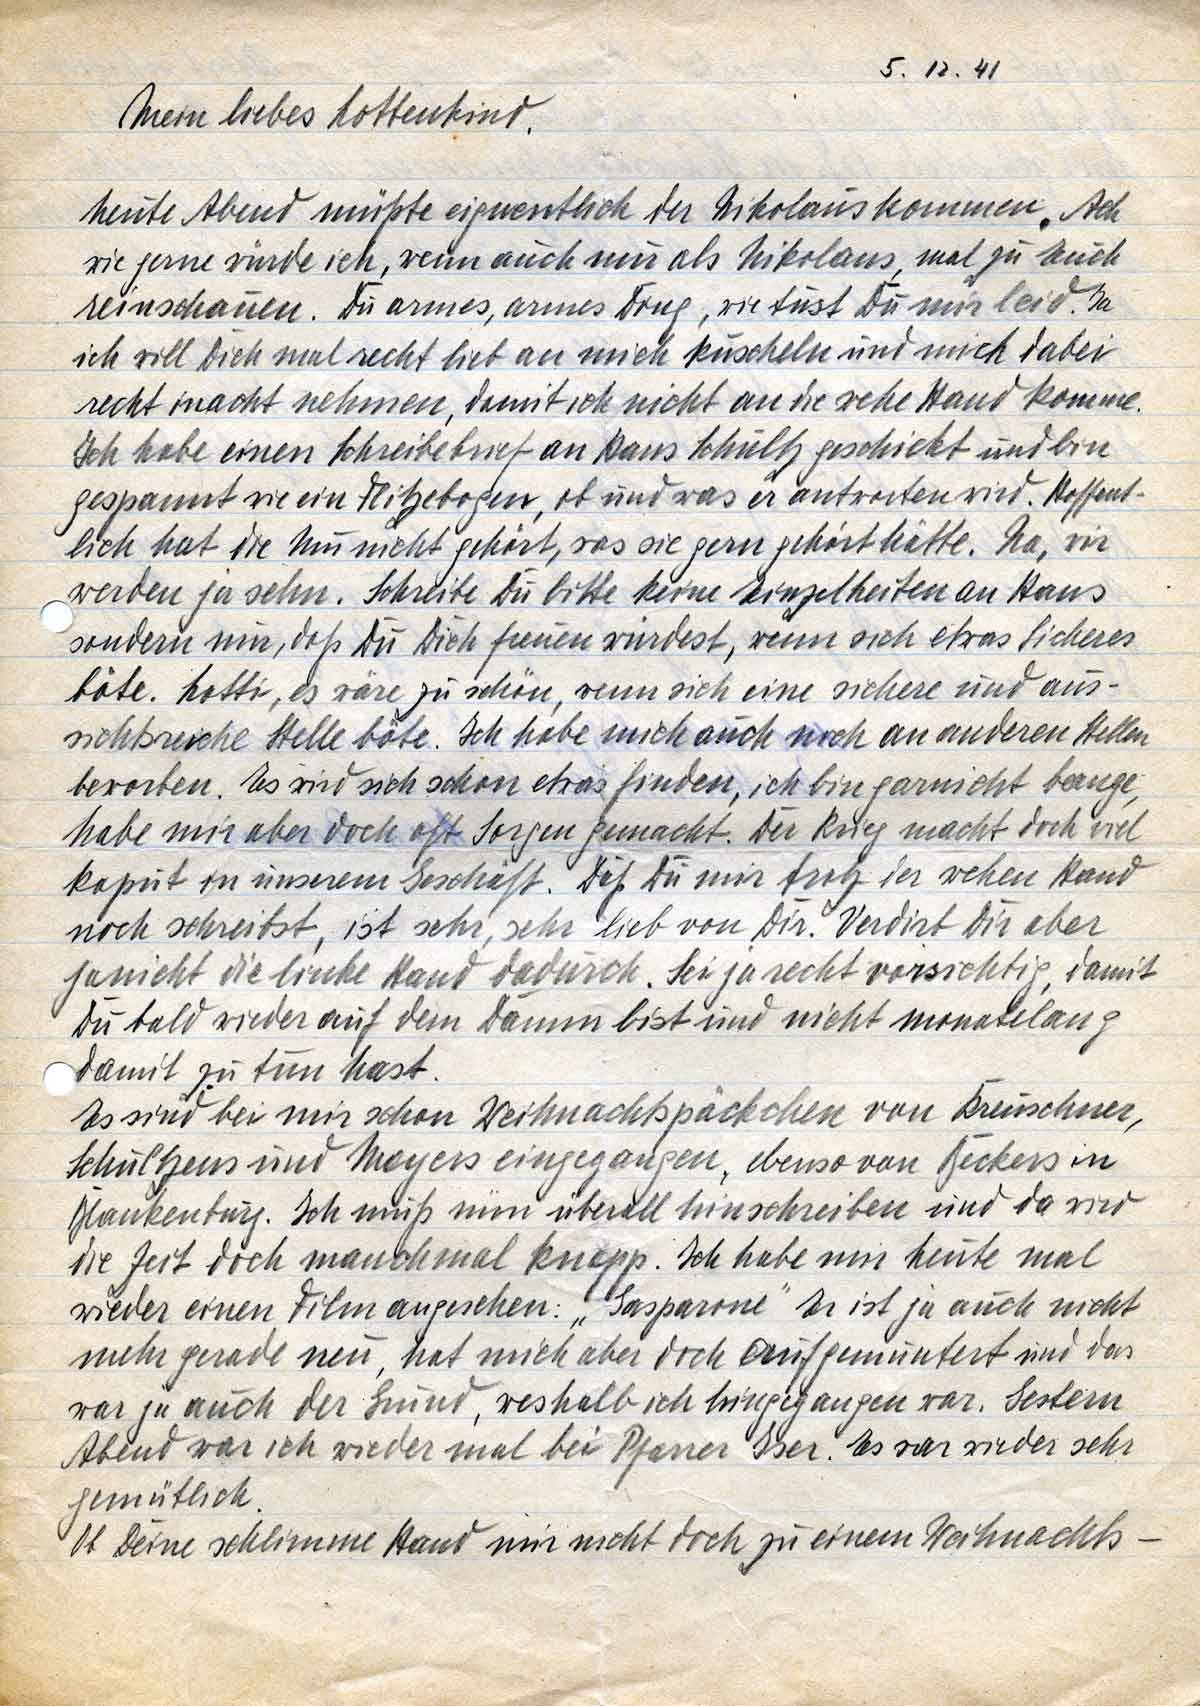 5. 12. 41
Mein liebes Lottenkind.
heute Abend müßte eigentlich der Nikolaus kommen. Ach
wie gerne würde ich, wenn auch nur als Nikolaus, mal zu Euch
reinschauen. Du armes, armes Ding, wie tust Du mir leid. Na
ich will Dich mal recht lieb an mich kuscheln und mich dabei
recht inacht nehmen, damit ich nicht an die wehe Hand komme.
Ich habe einen Schreibebrief an Hans Schultz geschickt und bin
gespannt wie ein Flitzebogen, ob und was er antworten wird. Hoffent-
lich hat die Mu nicht gehört, was sie gern gehört hätte. Na, wir
werden ja sehn. Schreibe Du bitte keine Einzelheiten an Hans
sondern nur, daß Du Dich freuen würdest, wenn sich etwas Sicheres
böte. Lotti, es wäre zu schön, wenn sich eine sichere und aus-
sichtsreiche Stelle böte. Ich habe mich auch noch an anderen Stellen
beworben. Es wird sich schon etwas finden, ich bin garnicht bange,
habe mir aber doch oft Sorgen gemacht. Der Krieg macht doch viel
kaput in unserem Geschäft. Daß Du mir trotz der wehen Hand
noch schreibst, ist sehr, sehr lieb von Dir. Verdirb Dir aber
ja nicht die linke Hand dadurch. Sei ja recht vorsichtig, damit
Du bald wieder auf dem Damm bist und nicht monatelang
damit zu tun hast.
Es sind bei mir schon Weihnachtspäckchen von Kreuschner,
Schultzens und Meyers eingegangen, ebenso von Beckers in
Blankenburg. Ich muß nun überall hinschreiben und da wird
die Zeit doch manchmal knapp. Ich habe mir heute mal
wieder einen Film angesehen: „Gasparone" Er ist ja auch nicht
mehr gerade neu, hat mich aber doch aufgemuntert und das
war ja auch der Grund, weshalb ich hingegangen war. Gestern
Abend war ich wieder mal bei Pfarrer Iser. Es war wieder sehr
gemütlich.
Ob Deine schlimme Hand mir nicht doch zu einem Weihnachts-